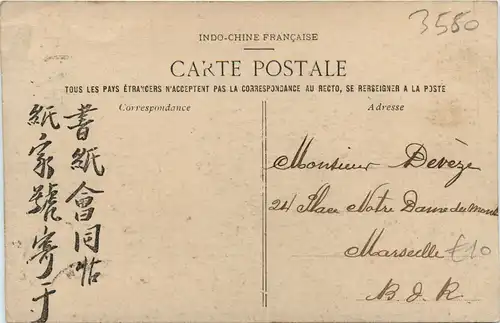 3580
INDO-CHINE FRANÇAISE
CARTE POSTALE
TOUS LES PAYS ÉTRANGERS N'ACCEPTENT PAS LA CORRESPONDANCE AU RECTO, SE RENSEIGNER A LA POSTE
Correspondance
Adresse
書紙會同帖
紙家號寄于
Monsieur Devèze
24 Place Notre Dame du mont
Marseille
£10
B. d. R.